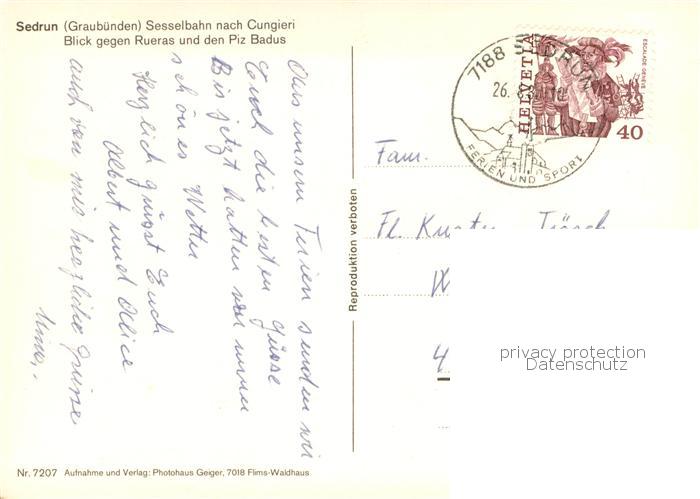 Sedrun (Graubünden) Sesselbahn nach Cungieri
Blick gegen Rueras und den Piz Badus
Aus unsern Ferien senden wir
Euch die besten Grüsse
Bis jetzt hatten wir immer
schönes Wetter
Herzlich grüsst Euch
Albert und Alice
auch von mir herzliche Grüsse
Reproduktion verboten
7188 SEDRUN
26. 8.
FERIEN UND SPORT
HELVETIA
ESCALADE GENEVE
40
Fam.
Fl.
privacy protection
Datenschutz
Nr. 7207 Aufnahme und Verlag: Photohaus Geiger, 7018 Flims-Waldhaus